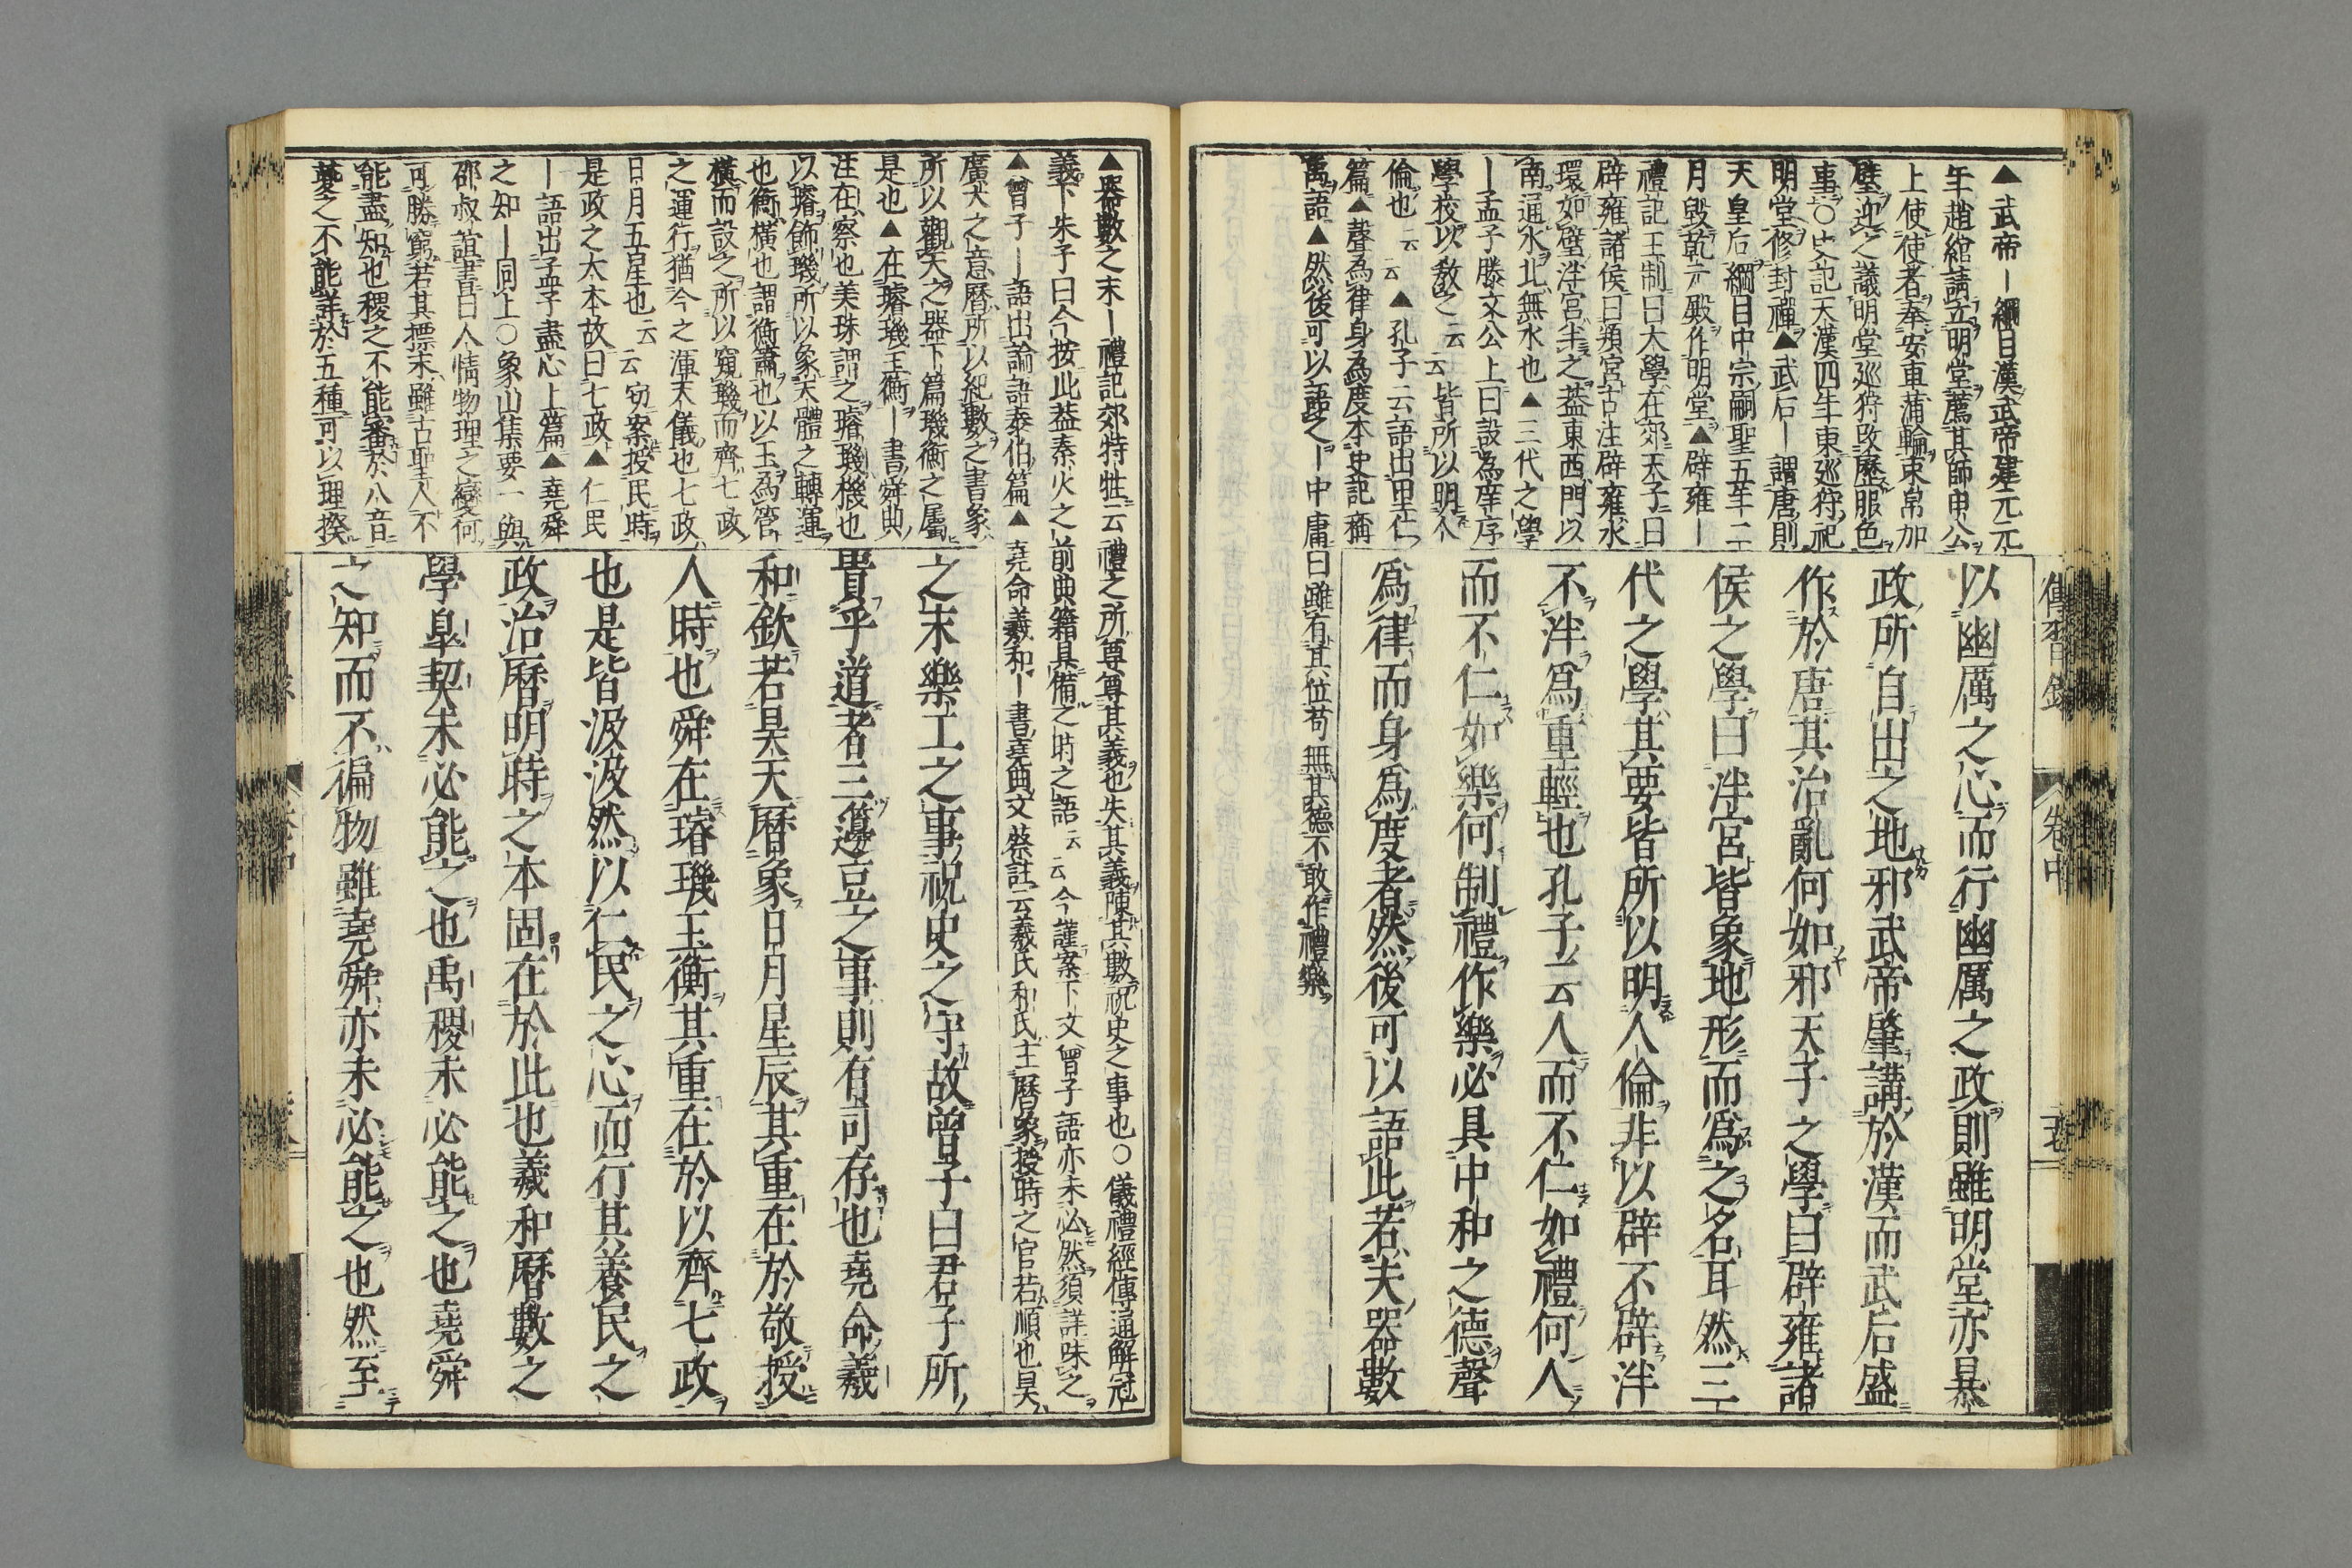 ▲武帝ー綱目漢武帝建元元
年趙綰請立明堂薦其師申公
上使使者奉安車蒲輪束帛加
璧迎之議明堂巡狩改歷服色
事○史記天漢四年東巡狩祀
明堂修封禪▲武后ー謂唐則
天皇后綱目中宗嗣聖五年二
月毀乾元殿作明堂▲辟雍ー
禮記王制曰大學在郊天子曰
辟雍諸侯曰頖宮古注辟雍水
環如璧泮宮半之蓋東西門以
南通水北無水也▲三代之學
ー孟子滕文公上曰設為庠序
學校以敎之云云皆所以明人
倫也云云▲孔子云語出里仁
篇▲聲為律身為度本史記稱
禹語▲然後可以語此ー中庸曰雖有其位苟無其德不敢作禮樂
傳習錄 卷中
以幽厲之心而行幽厲之政則雖明堂亦暴
政所自出之地邪武帝肇講於漢而武后盛
作於唐其治亂何如邪天子之學曰辟雍諸
侯之學曰泮宮皆象地形而爲之名耳然三
代之學其要皆所以明人倫非以辟不辟泮
不泮爲重輕也孔子云人而不仁如禮何人
而不仁如樂何制禮作樂必具中和之德聲
爲律而身爲度者然後可以語此若夫器數
▲器數之末ー禮記郊特牲云禮之所尊尊其義也失其義陳其數祝史之事也○儀禮經傳通解冠
義下朱子曰今按此蓋秦火之前典籍具備之時之語云云今謹案下文曾子語亦未必然須詳味之
▲曾子ー語出論語泰伯篇▲堯命羲和ー書堯典文蔡註云羲氏和氏主曆象授時之官若順也昊
廣大之意曆所以紀數之書象
所以觀天之器下篇璣衡之屬
是也▲在璿璣玉衡ー書舜典
注在察也美珠謂之璿璣機也
以璿飾璣所以象天體之轉運
也衡橫也謂衡簫也以玉為管
橫而設之所以窺璣而齊七政
之運行猶今之渾天儀也七政
日月五星也云云竊案授民時
是政之大本故曰七政▲仁民
ー語出孟子盡心上篇▲堯舜
之知ー同上○象山集要一與
邵叔誼書曰人情物理之變何
可勝窮若其標末雖古聖人不
能盡知也稷之不能審於八音
夔之不能詳於五種可以理揆
之末樂工之事祝史之守故曾子曰君子所
貴乎道者三籩豆之事則有司存也堯命羲
和欽若昊天曆象日月星辰其重在於敬授
人時也舜在璿璣玉衡其重在於以齊七政
也是皆汲汲然以仁民之心而行其養民之
政治曆明時之本固在於此也羲和曆數之
學皐契未必能之也禹稷未必能之也堯舜
之知而不徧物雖堯舜亦未必能之也然至